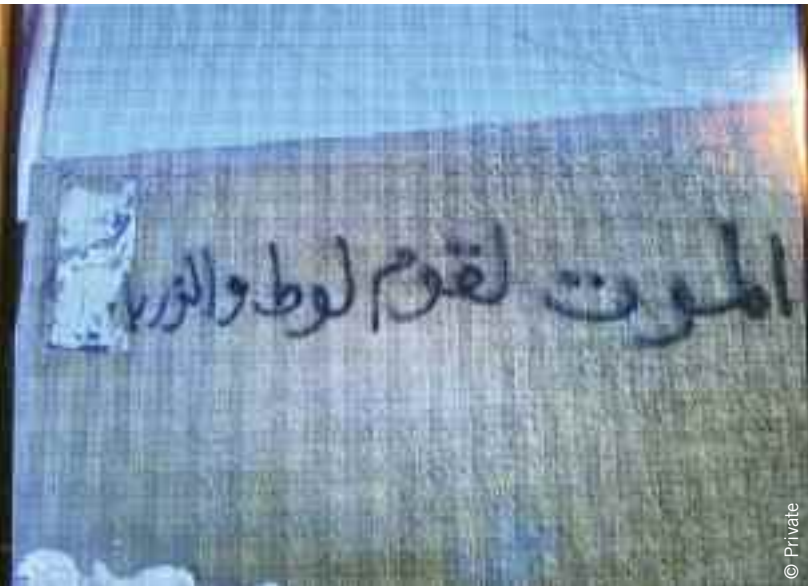 الموت لقوم لوط
© Private